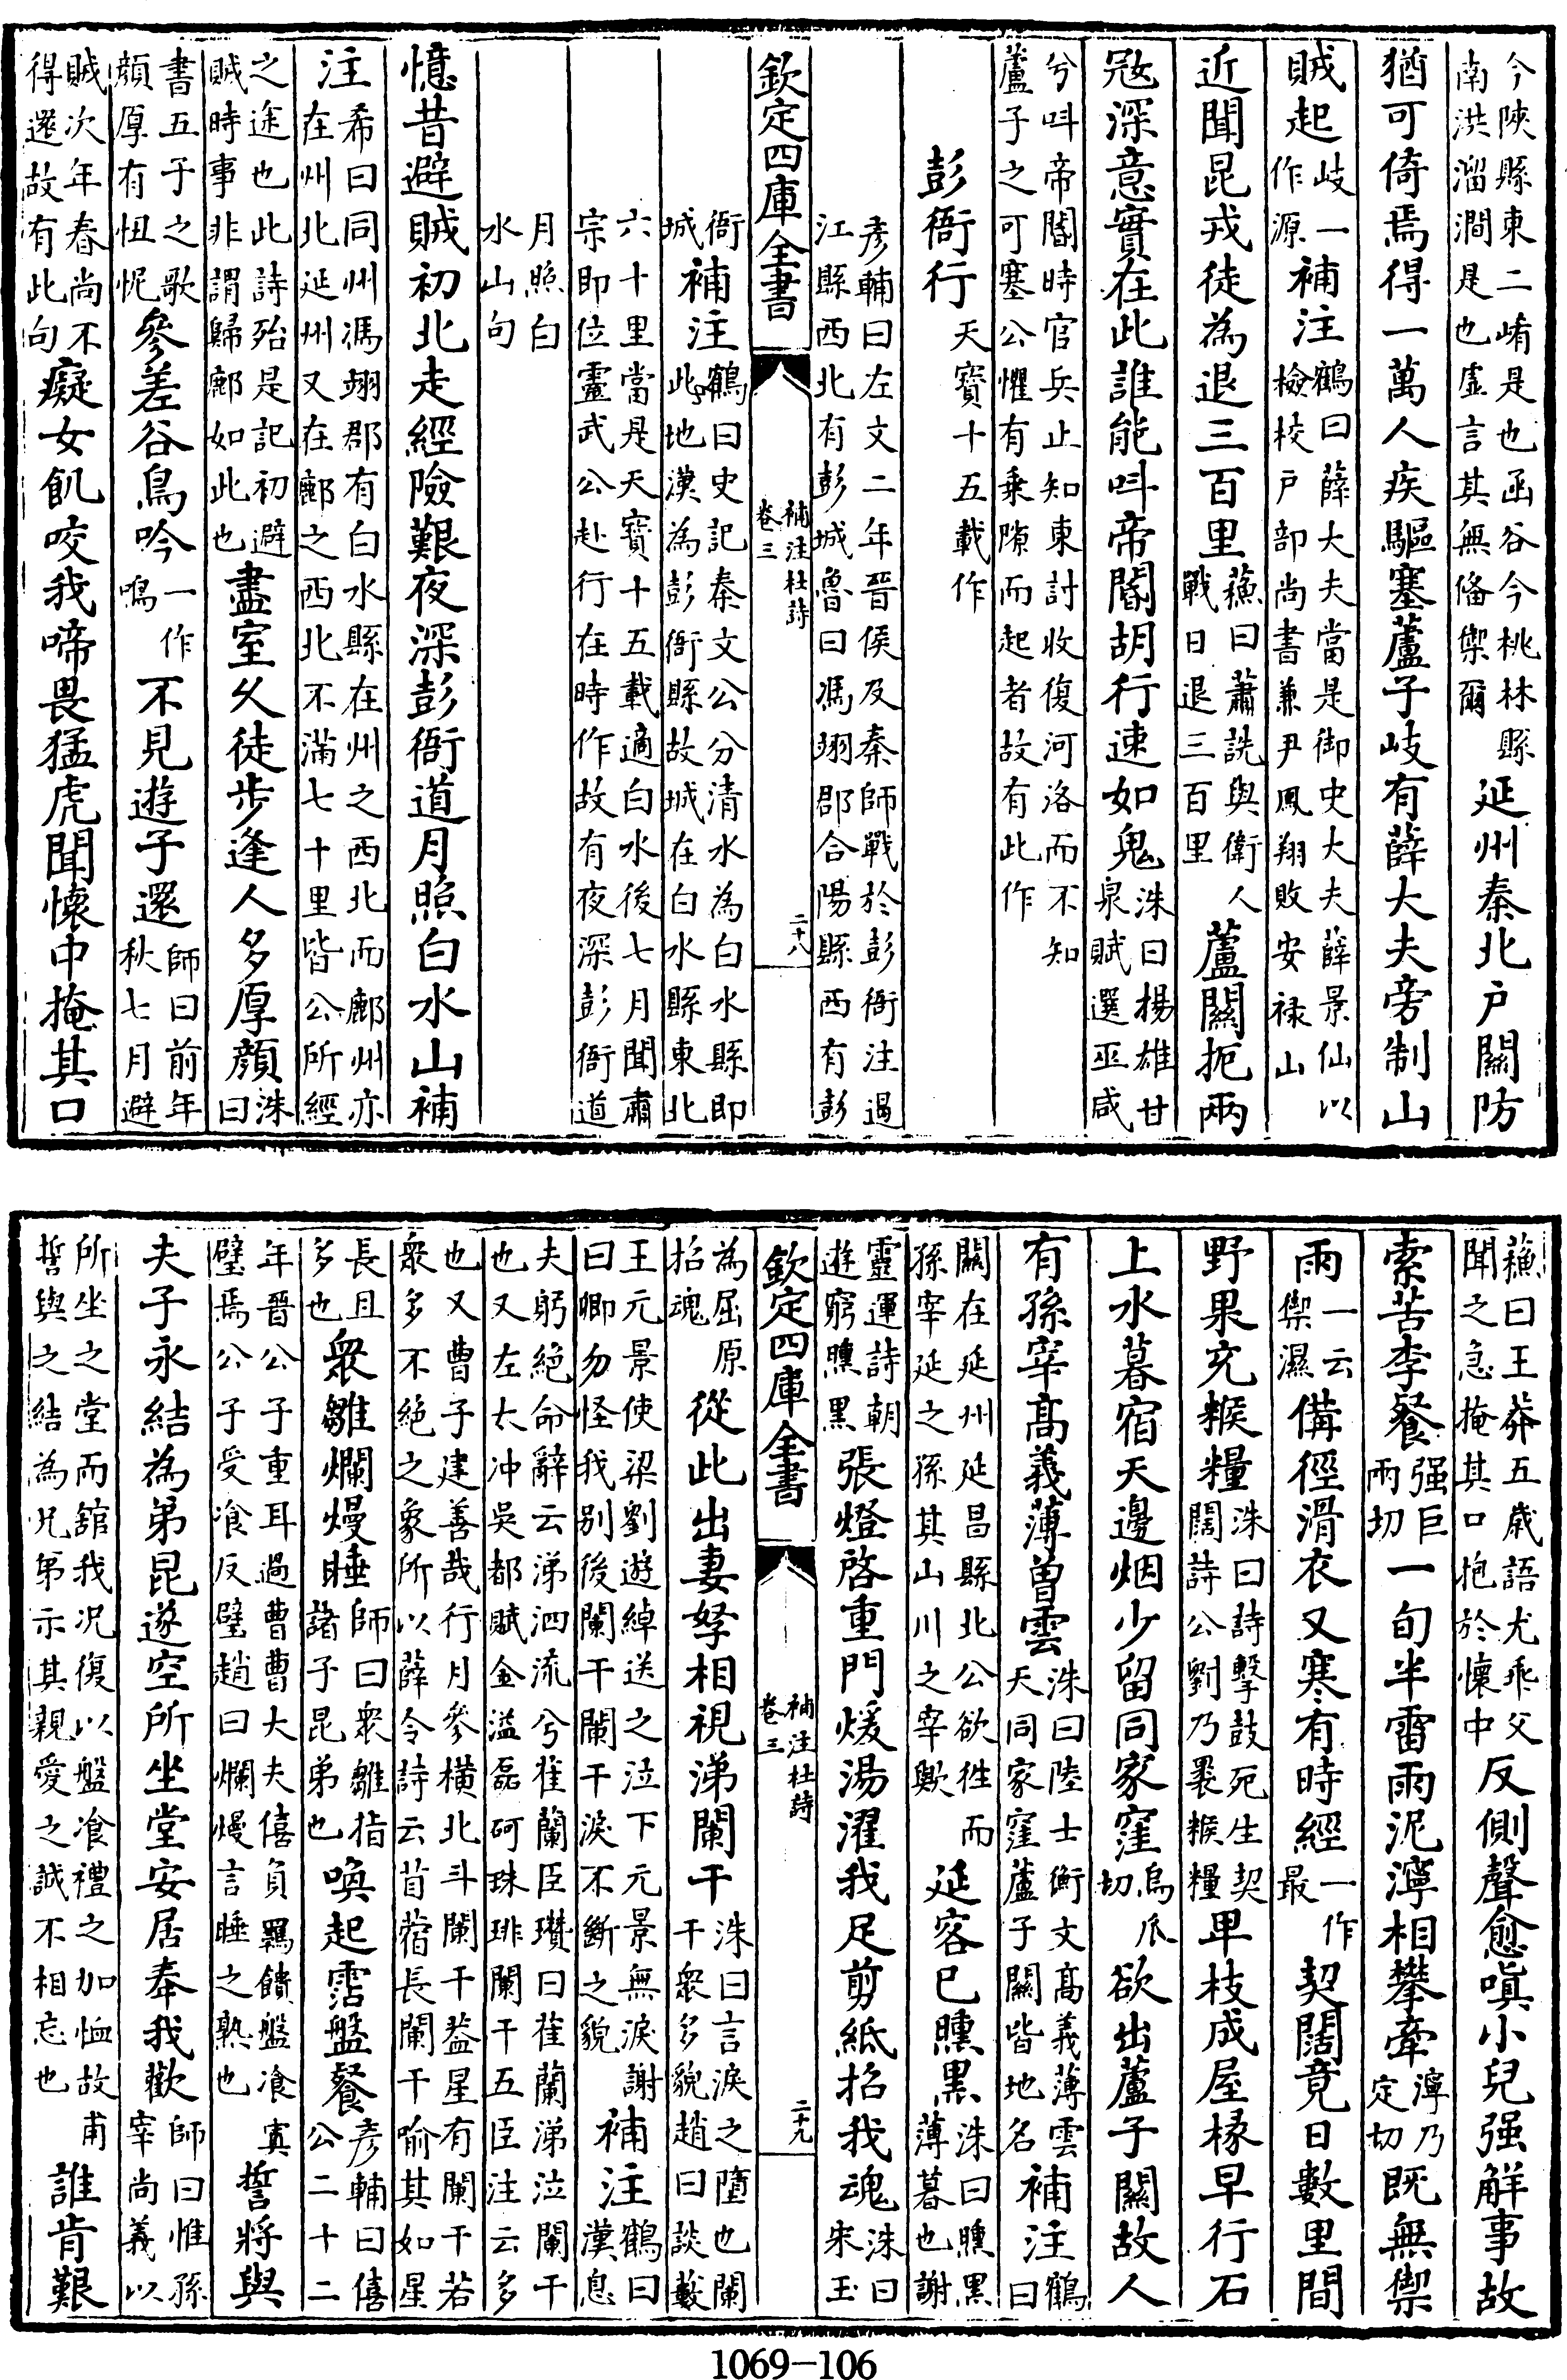 今陝縣東二崤是也函谷今桃林縣南洪溜澗是也虛言其無俻禦爾延州秦北戶關防
猶可倚焉得一萬人疾驅塞蘆子岐有薛大夫旁制山
賊起岐一作源補注鶴曰薛大夫當是御史大夫薛景仙以檢校戶部尚書兼尹鳳翔敗安祿山
近聞昆戎徒為退三百里蘓曰蕭詵與衛人戰日退三百里蘆關扼兩
寇深意實在此誰能呌帝閽胡行速如鬼洙曰楊雄甘泉賦選巫咸
兮呌帝閽時官兵止知東討收復河洛而不知蘆子之可塞公懼有乗隙而起者故有此作
彭衙行天寶十五載作
彥輔曰左文二年晉侯及秦師戰於彭衙注過江縣西北有彭城魯曰馮翊郡合陽縣西有彭
欽定四庫全書 補注杜詩 卷三 二十八
衙城補注鶴曰史記秦文公分清水為白水縣即此地漢為彭衙縣故城在白水縣東北
六十里當是天寶十五載適白水後七月聞肅宗即位靈武公赴行在時作故有夜深彭衙道
月照白水山句
憶昔避賊初北走經險艱夜深彭衙道月照白水山補
注希曰同州馮翊郡有白水縣在州之西北而鄜州亦在州北延州又在鄜之西北不滿七十里皆公所經
之途也此詩殆是記初避賊時事非謂歸鄜如此也盡室久徒步逢人多厚顔洙曰
書五子之歌顔厚有忸怩參差谷鳥吟一作鳴不見遊子還師曰前年秋七月避
賊次年春尚不得還故有此句癡女飢咬我啼畏猛虎聞懷中掩其口
蘓曰王莽五歲語尤乖父聞之急掩其口抱於懷中反側聲愈嗔小兒强解事故
索苦李餐强巨兩切一旬半雷雨泥濘相攀牽濘乃定切既無禦
雨一云禦濕備徑滑衣又寒有時經一作最契闊竟日數里間
野果充糇糧洙曰詩擊鼓死生契闊詩公劉乃裹糇糧卑枝成屋椽早行石
上水暮宿天邊烟少留同家窪烏爪切欲出蘆子關故人
有孫宰高義薄曾雲洙曰陸士衡文高義薄雲天同家窪蘆子關皆地名補注鶴曰
關在延州延昌縣北公欲徃而孫宰延之孫其山川之宰歟延客已曛黑洙曰曛黑薄暮也謝
靈運詩朝遊窮曛黑張燈啓重門煖湯濯我足剪紙招我魂洙曰宋玉
欽定四庫全書 補注杜詩 卷三 二十九
為屈原招魂從此出妻孥相視涕闌干洙曰言淚之墮也闌干衆多貌趙曰談藪
王元景使梁劉遊綽送之泣下元景無淚謝曰卿勿怪我别後闌干闌干淚不斷之貌補注鶴曰漢息
夫躬絶命辭云涕泗流兮萑蘭臣瓚曰萑蘭涕泣闌干也又左太冲吳都賦金溢磊砢珠琲闌干五臣注云多
也又曹子建善哉行月參横北斗闌干葢星有闌干若衆多不絶之象所以薛令詩云苜蓿長闌干喻其如星
長且多也衆雛爛熳睡師曰衆雛指諸子昆弟也喚起霑盤餐彥輔曰僖公二十二
年晉公子重耳過曹曹大夫僖負羈饋盤飡寘璧焉公子受飡反璧趙曰爛熳言睡之熟也誓將與
夫子永結為弟昆遂空所坐堂安居奉我歡師曰惟孫宰尚義以
所坐之堂而舘我况復以盤飡禮之加恤故甫誓與之結為兄弟示其親愛之誠不相忘也誰肯艱
1069-106